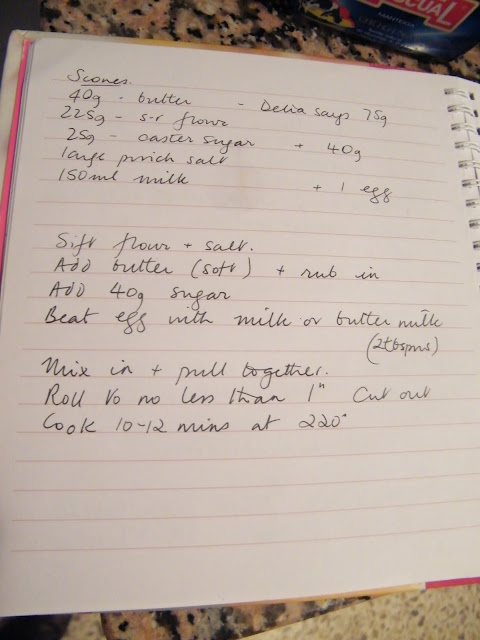 SCUAL
MANTECA
ORIGINAL
Scones.
40g - butter - Delia says 75g
225g - s-r flour
25g - caster sugar + 40g
large pinch salt
150ml milk + 1 egg
Sift flour + salt.
Add butter (soft) + rub in
Add 40g sugar
Beat egg with milk or butter milk
(2tbspns)
Mix in + pull together.
Roll to no less than 1" Cut out
Cook 10-12 mins at 220°